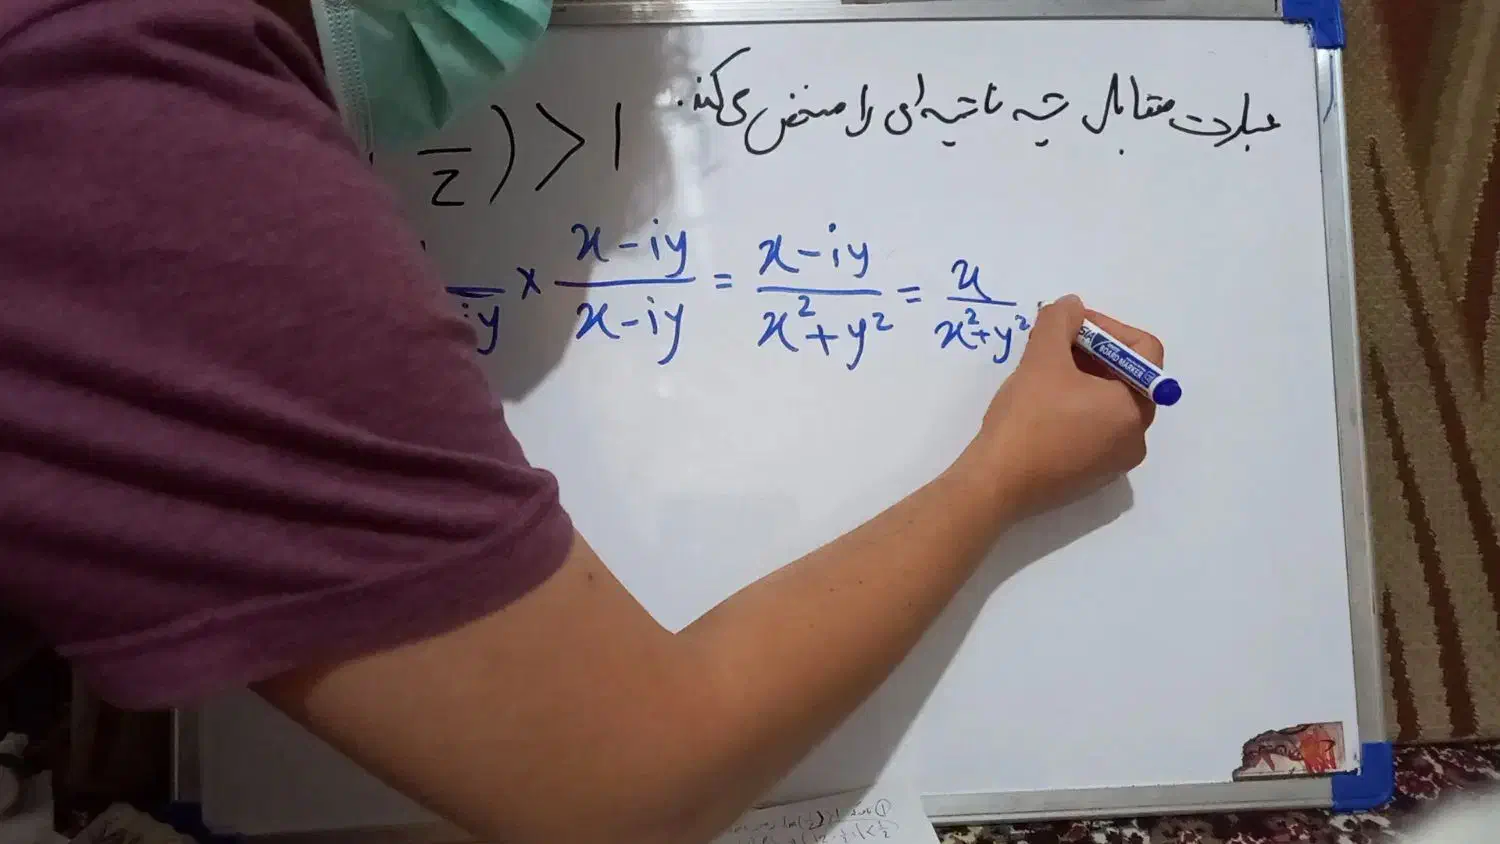 عبارت مقابل چه ناحیه‌ای را مشخص می‌کند.
1/z) > 1
iy × (x - iy)/(x - iy) = (x - iy)/(x² + y²) = x/(x² + y²)
BOARD MARKER